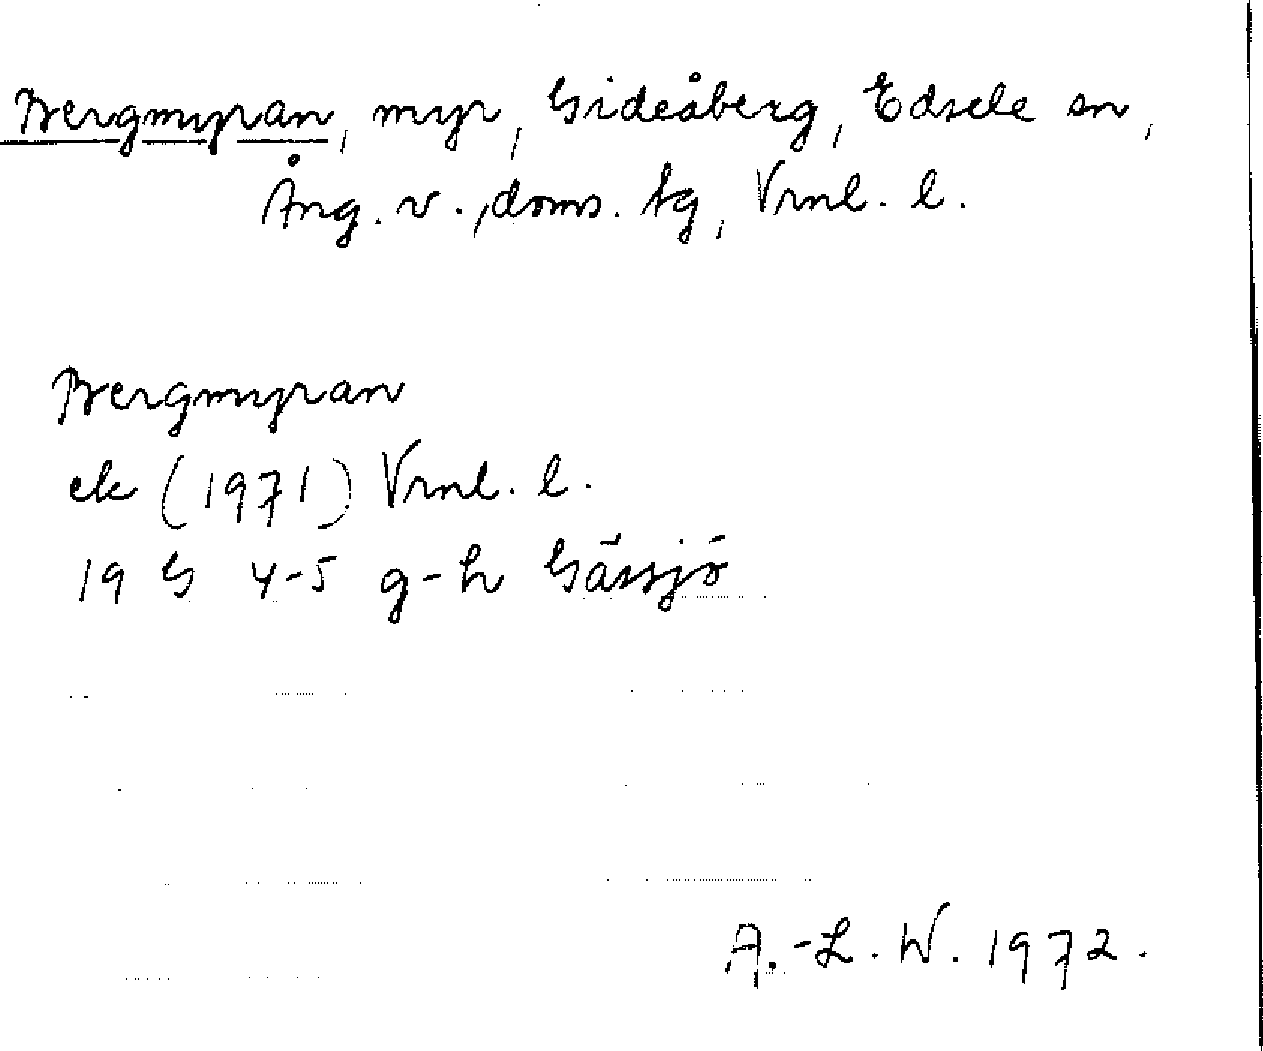 Bergmyran, myr, Gideåberg, Edsele sn,
Ång. v., doms. tg, Vrnl. l.
Bergmyran
ek (1971) Vrnl. l.
19 G 4-5 g-h Gåssjö
A.-L. W. 1972.